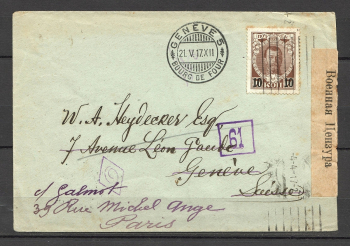 GENÈVE 5
21.V.17.XII
BOURG DE FOUR
10 10
Военная Цензура
W. A. Heydecker Esq
7 Avenue Léon Gaud
61
Genève
Suisse
c/ Galmot
39 Rue Michel Ange
Paris